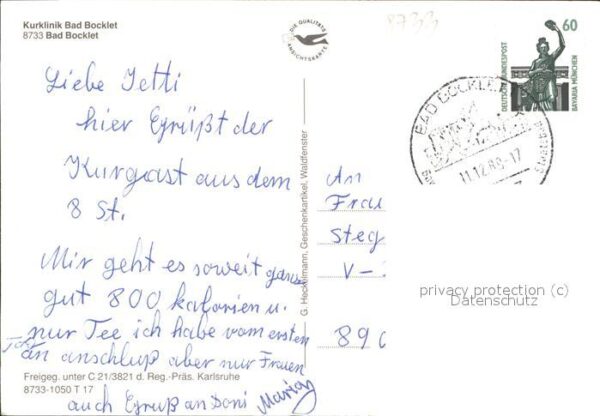 Kurklinik Bad Bocklet
8733 Bad Bocklet
DIE QUALITÄTS
ANSICHTSKARTE
8733
60
DEUTSCHE BUNDESPOST
BAVARIA MÜNCHEN
BAD BOCKLE
11.12.88-17
Liebe Jetti
hier Grüßt der
Kurgast aus dem
8 St.
Mir geht es soweit ganz
gut 800 kalorien u.
nur Tee ich habe vom ersten
Tag
an anschluß aber nur Frauen
auch Gruß an Doni Marion
G. Heckelmann, Geschenkartikel, Waldfenster
An
Frau
Steg
V-
890
privacy protection (c)
Datenschutz
Freigeg. unter C 21/3821 d. Reg.-Präs. Karlsruhe
8733-1050 T 17